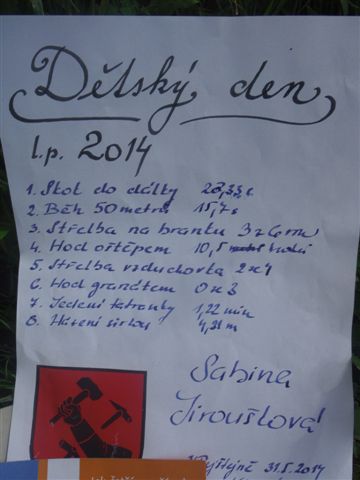 Dětský den
l.p. 2014
1. Skok do dálky
2. Běh 50 metrů 15,7 s
3. Střelba na branku 3 z 6 
4. Hod oštěpem 10,5
5. Střelba vzduchovka 2x1
6. Hod granátem 0x3
7. Jedení tatranky 1,22 min
8. Házení 4,31 m
Sabina
Jiroušlová
31.5.2014